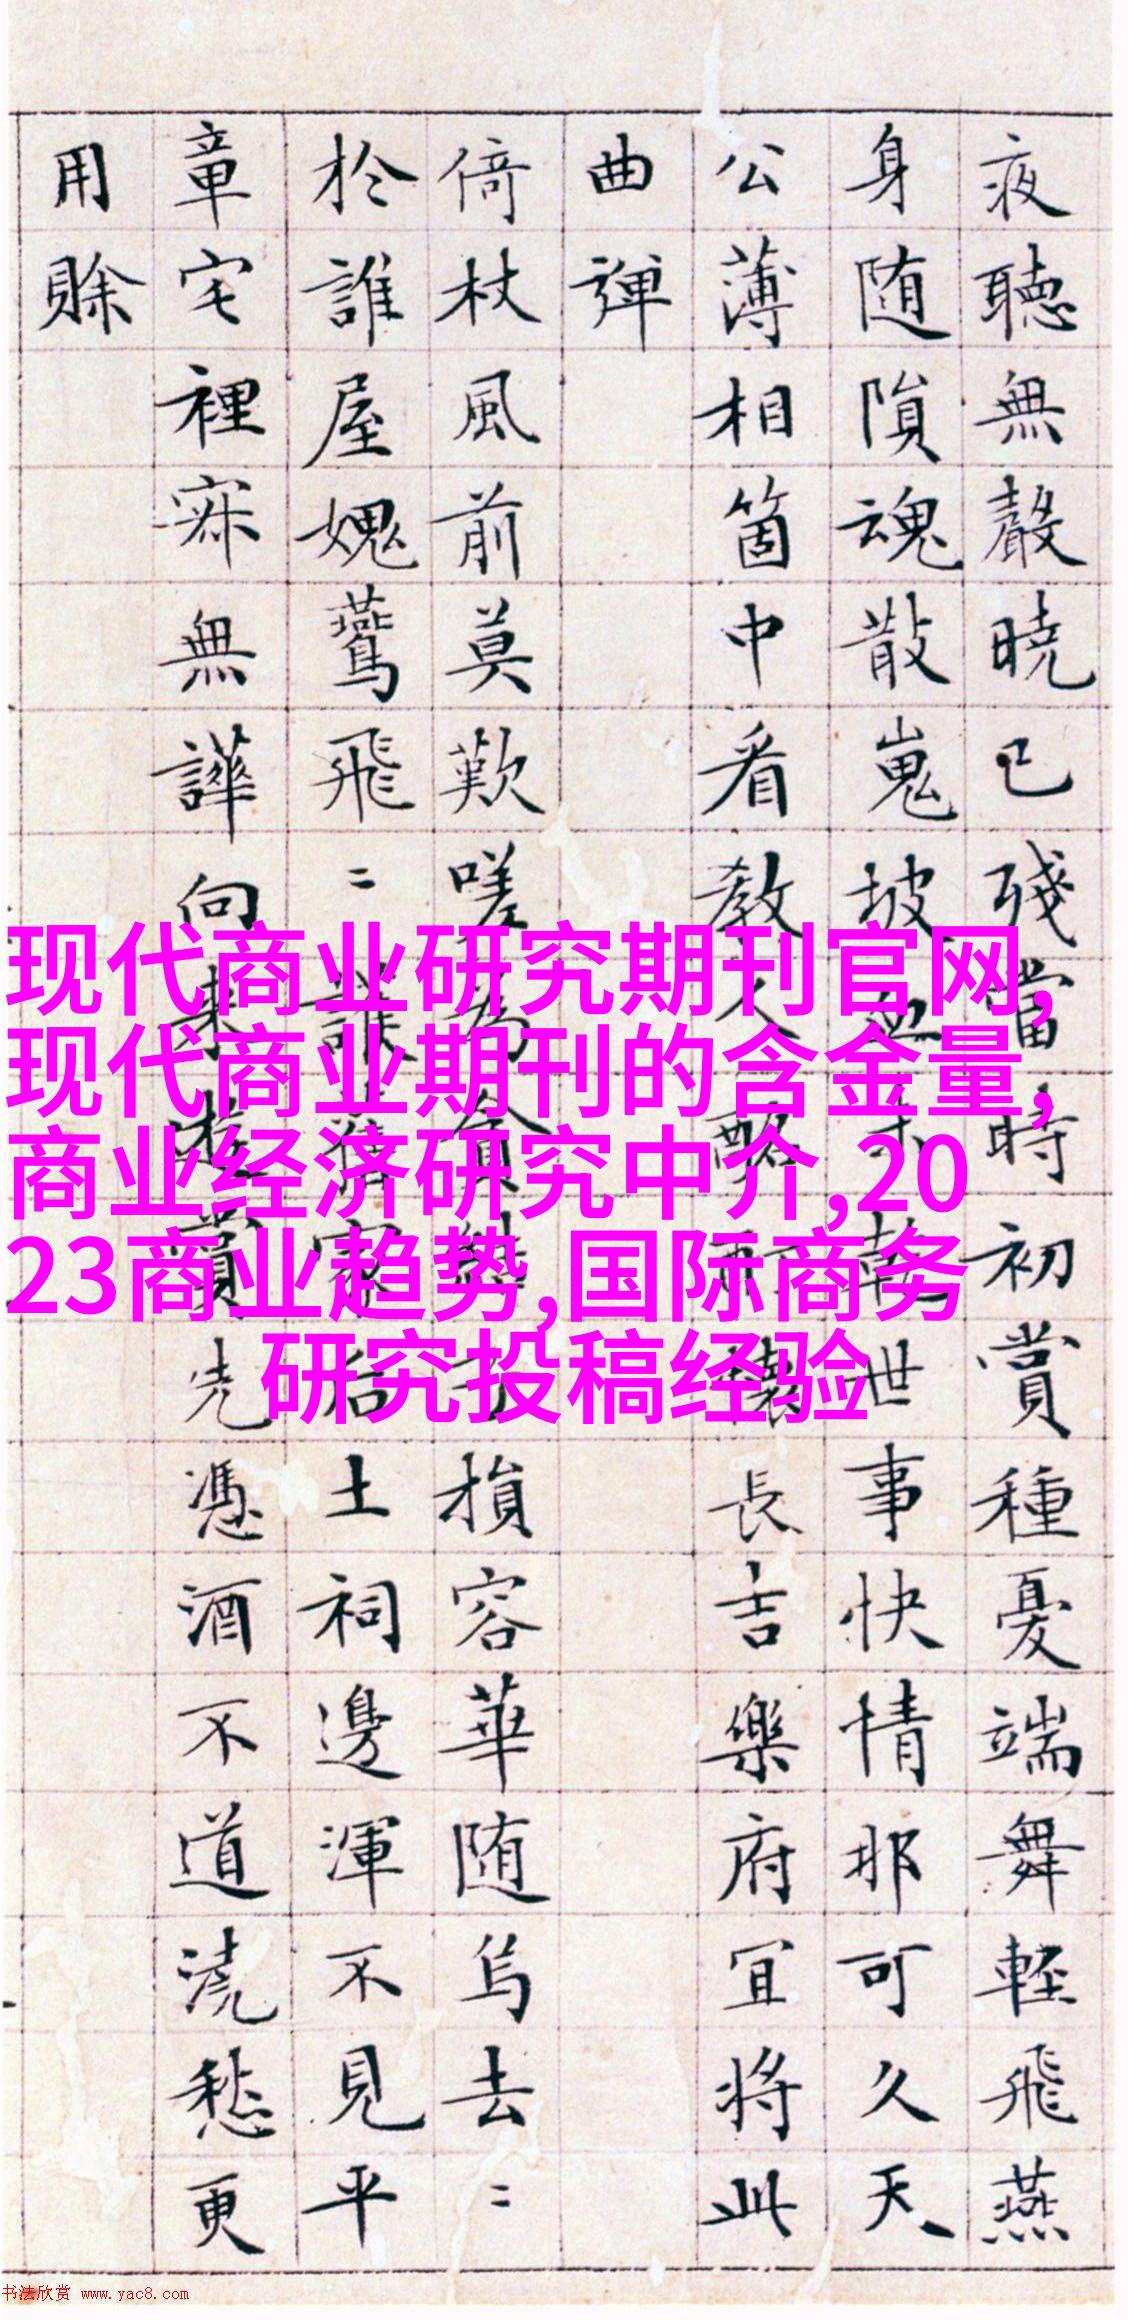 夜聽無聲曉已殘當時初賞種憂端舞輕飛燕
身随隕魂散嵬坡世事快情那可久天
公薄相箇中看教人長吉樂府宜将此
曲彈
倚杖風前莫歎嗟損容華随烏去〻
於誰屋媿鶩飛〻誰土祠邊渾不見平
章宅裡寂無譁向来遊賞先憑酒不道澆愁更
用賒
现代商业研究期刊官网,
现代商业期刊的含金量,
商业经济研究中介,20
23商业趋势,国际商务
研究投稿经验
书法欣赏 www.yac8.com